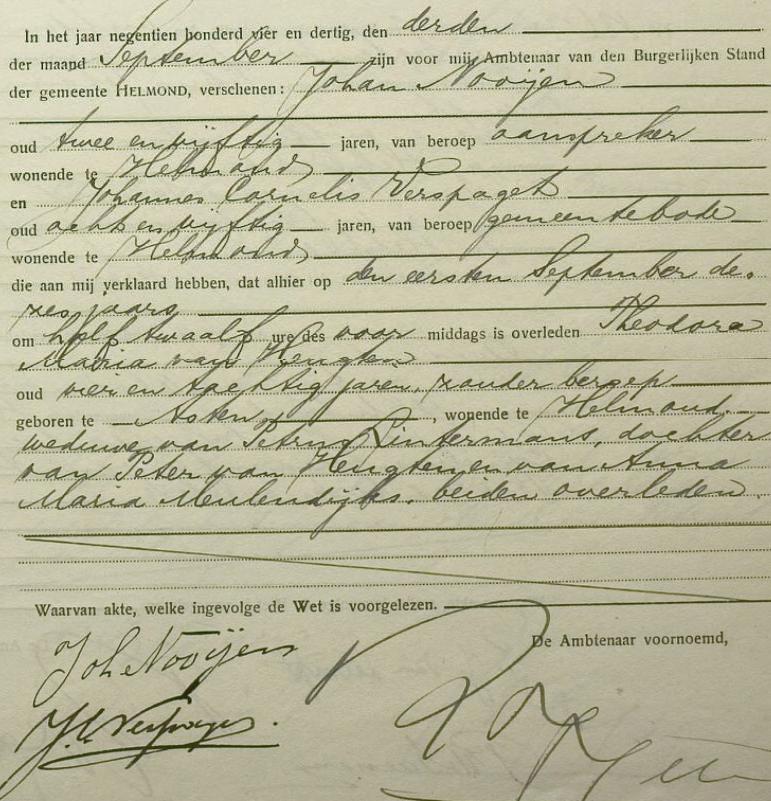 In het jaar negentien honderd vier en dertig, den derden
der maand September zijn voor mij Ambtenaar van den Burgerlijken Stand
der gemeente HELMOND, verschenen: Johan Nooijen
oud twee en vijftig jaren, van beroep aanspreker
wonende te Helmond
en Johannes Cornelis Verspaget
oud acht en vijftig jaren, van beroep gemeentebode
wonende te Helmond
die aan mij verklaard hebben, dat alhier op den eersten September de-
zes jaars
om half twaalf ure des voor middags is overleden Theodora
Maria van Hengten
oud vier en tachtig jaren, zonder beroep
geboren te Asten, wonende te Helmond,
weduwe van Petrus Lintermans, dochter
van Peter van Hengten en van Anna
Maria Meulendijks, beiden overleden.
Waarvan akte, welke ingevolge de Wet is voorgelezen.
De Ambtenaar voornoemd,
Joh Nooijen
J.C. Verspaget.